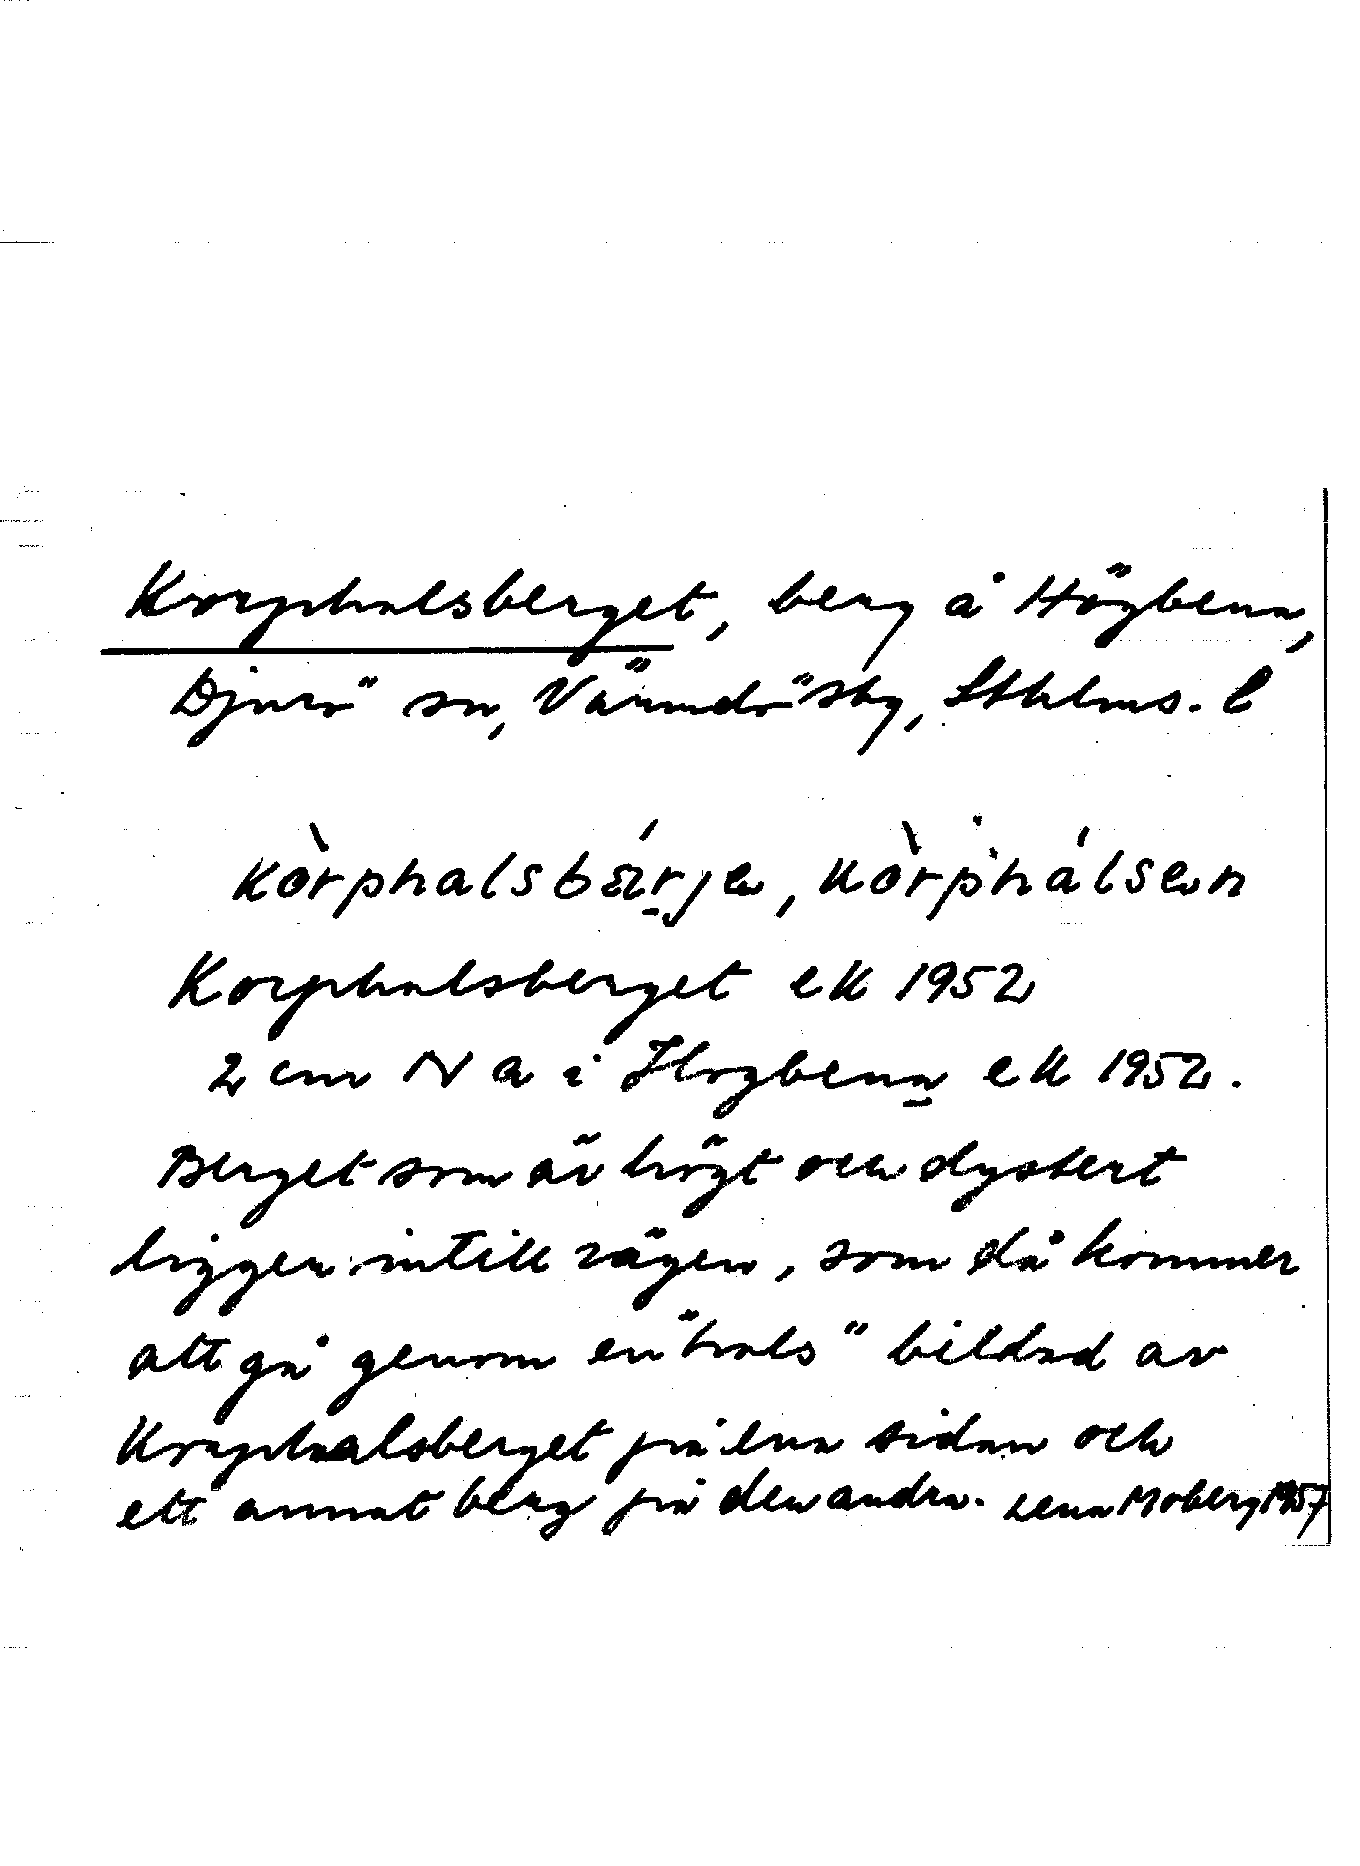 Korphalsberget, berg å Högbena,
Djurö sn, Värmdö sky, Sthlms. l
kòrphalsbä́rje, kòrphálsen
Korphalsberget ek 1952
2 cm N a i Högbena ek 1952.
Berget som är högt och dystert
ligger intill vägen, som då kommer
att gå genom en "hals" bildad av
Korphalsberget på ena sidan och
ett annat berg på den andra. Lena Moberg 1957